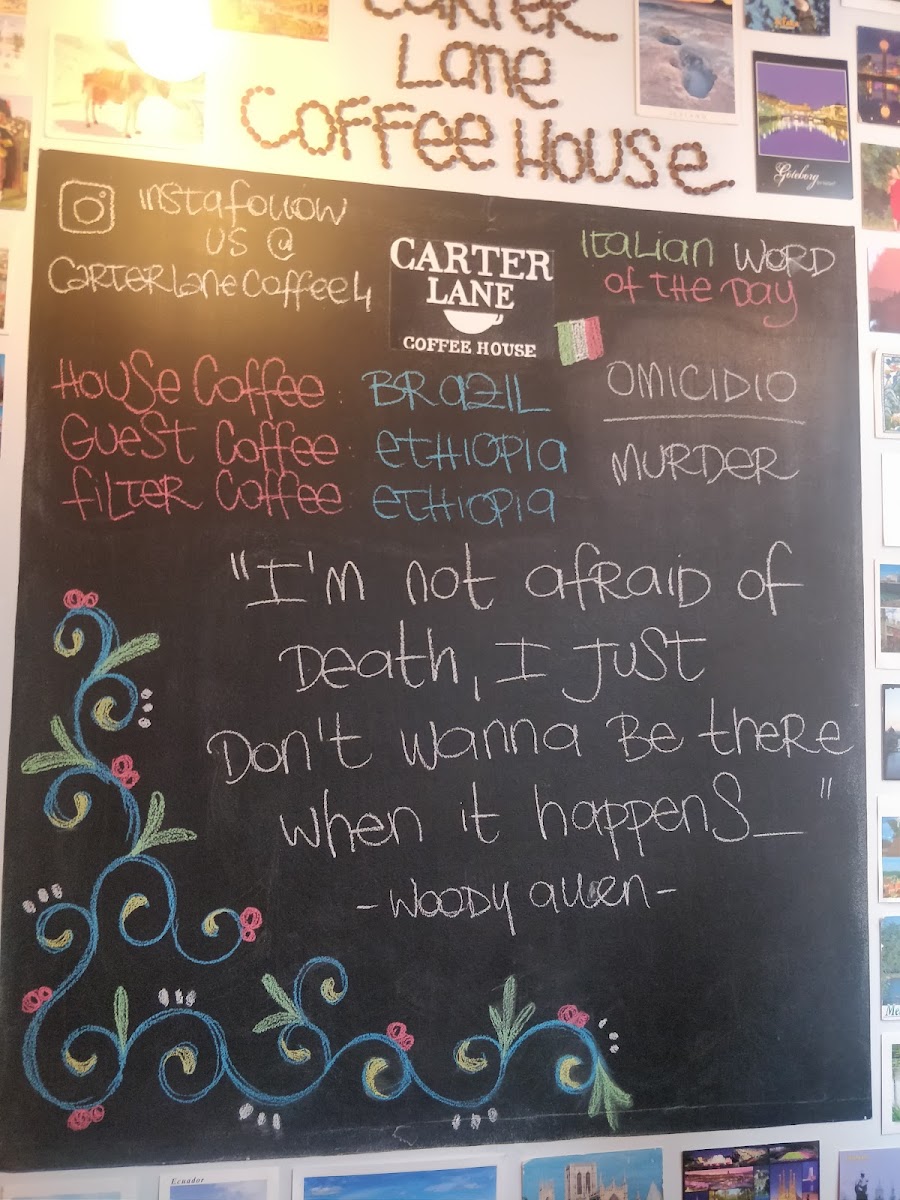 CARTER
Lane
Coffee House
ICELAND
Göteborg
instafollow
us @
Carterlanecoffee4
CARTER
LANE
COFFEE HOUSE
Italian Word
of the Day
House Coffee: BRAZIL
Guest Coffee: ETHIOPIA
Filter Coffee ETHIOPIA
OMICIDIO
MURDER
"I'm not afraid of
Death, I just
Don't wanna Be there
when it happens_"
-Woody Allen-
Ecuador